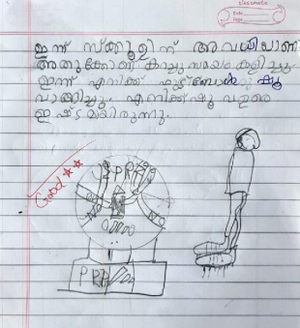 classmate
Date
Page
ഇന്ന് സ്ക്കൂളിന് അവധിയാണ്
അതുകോണ്ട് കുറച്ചു സമയം കളിച്ചു.
ഇന്ന് എനിക്ക് ഫുട്ബോൾ ഷൂ
വാങ്ങിച്ചു. എനിക്ക് ഷൂ വളരെ
ഇഷ്ടമയിരുന്നു.
Good